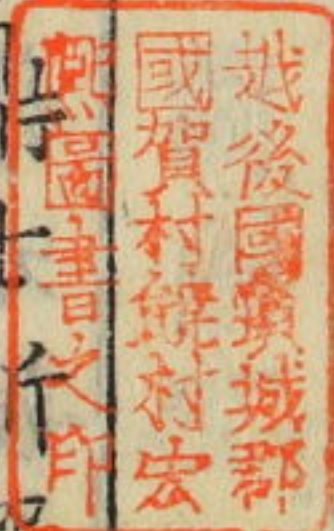 越後國頸城郡
國賀村村宏
圖書之印